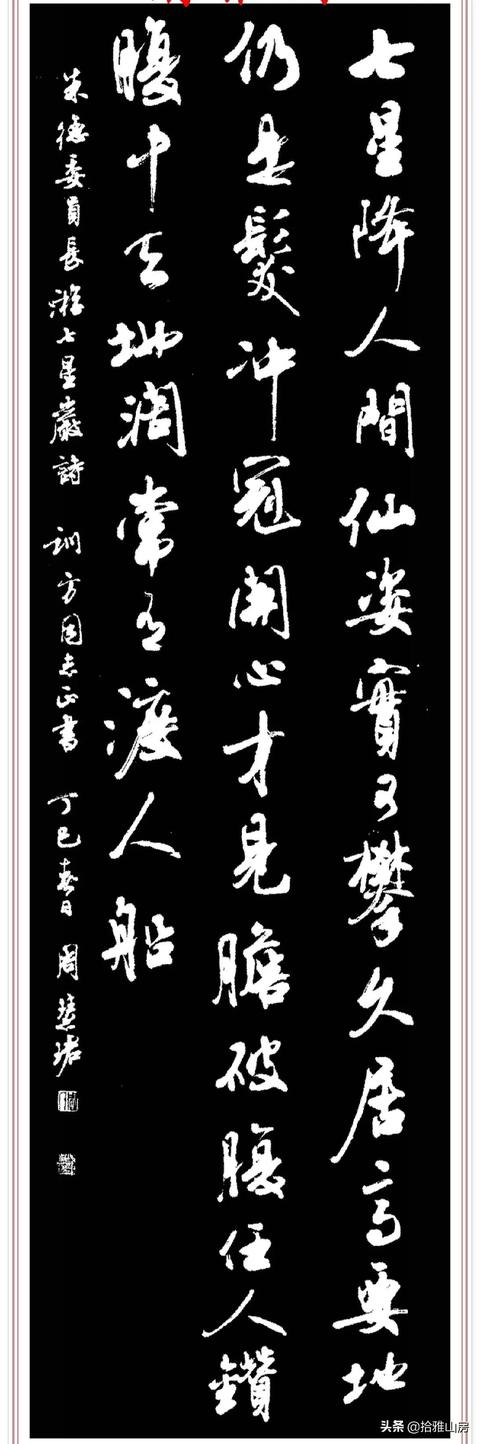 七星降人間仙姿實可攀久居高要地
仍是髮冲冠開心才見膽破腹任人鑽
腹中天地濶常有渡人船
朱德委員長游七星巖詩 訓方同志正書 丁巳春日 周慧珺
头条 @拾雅山房